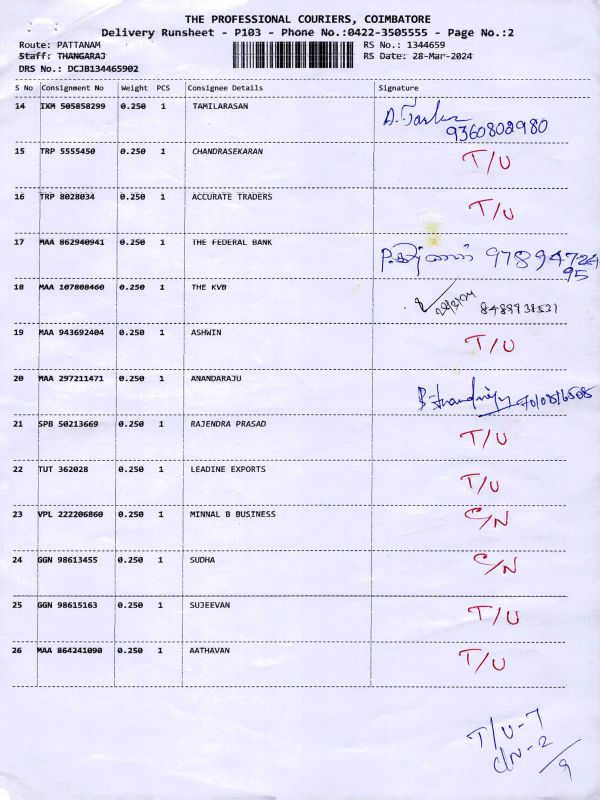 THE PROFESSIONAL COURIERS, COIMBATORE
Delivery Runsheet - P103 - Phone No.:0422-3505555 - Page No.:2
Route: PATTANAM RS No.: 1344659
Staff: THANGARAJ RS Date: 28-Mar-2024
DRS No.: DCJB134465902
S No Consignment No Weight PCS Consignee Details Signature
14 IXM 505858299 0.250 1 TAMILARASAN
9360802980
15 TRP 5555450 0.250 1 CHANDRASEKARAN T/U
16 TRP 8028034 0.250 1 ACCURATE TRADERS T/U
17 MAA 862940941 0.250 1 THE FEDERAL BANK 97894724
95
18 MAA 107808460 0.250 1 THE KVB 28/3/24
19 MAA 943692404 0.250 1 ASHWIN T/U
20 MAA 297211471 0.250 1 ANANDARAJU
21 SPB 50213669 0.250 1 RAJENDRA PRASAD T/U
22 TUT 362028 0.250 1 LEADINE EXPORTS T/U
23 VPL 222206860 0.250 1 MINNAL B BUSINESS C/N
24 GGN 98613455 0.250 1 SUDHA C/N
25 GGN 98615163 0.250 1 SUJEEVAN T/U
26 MAA 864241090 0.250 1 AATHAVAN T/U
T/U-7
C/N-2
/9